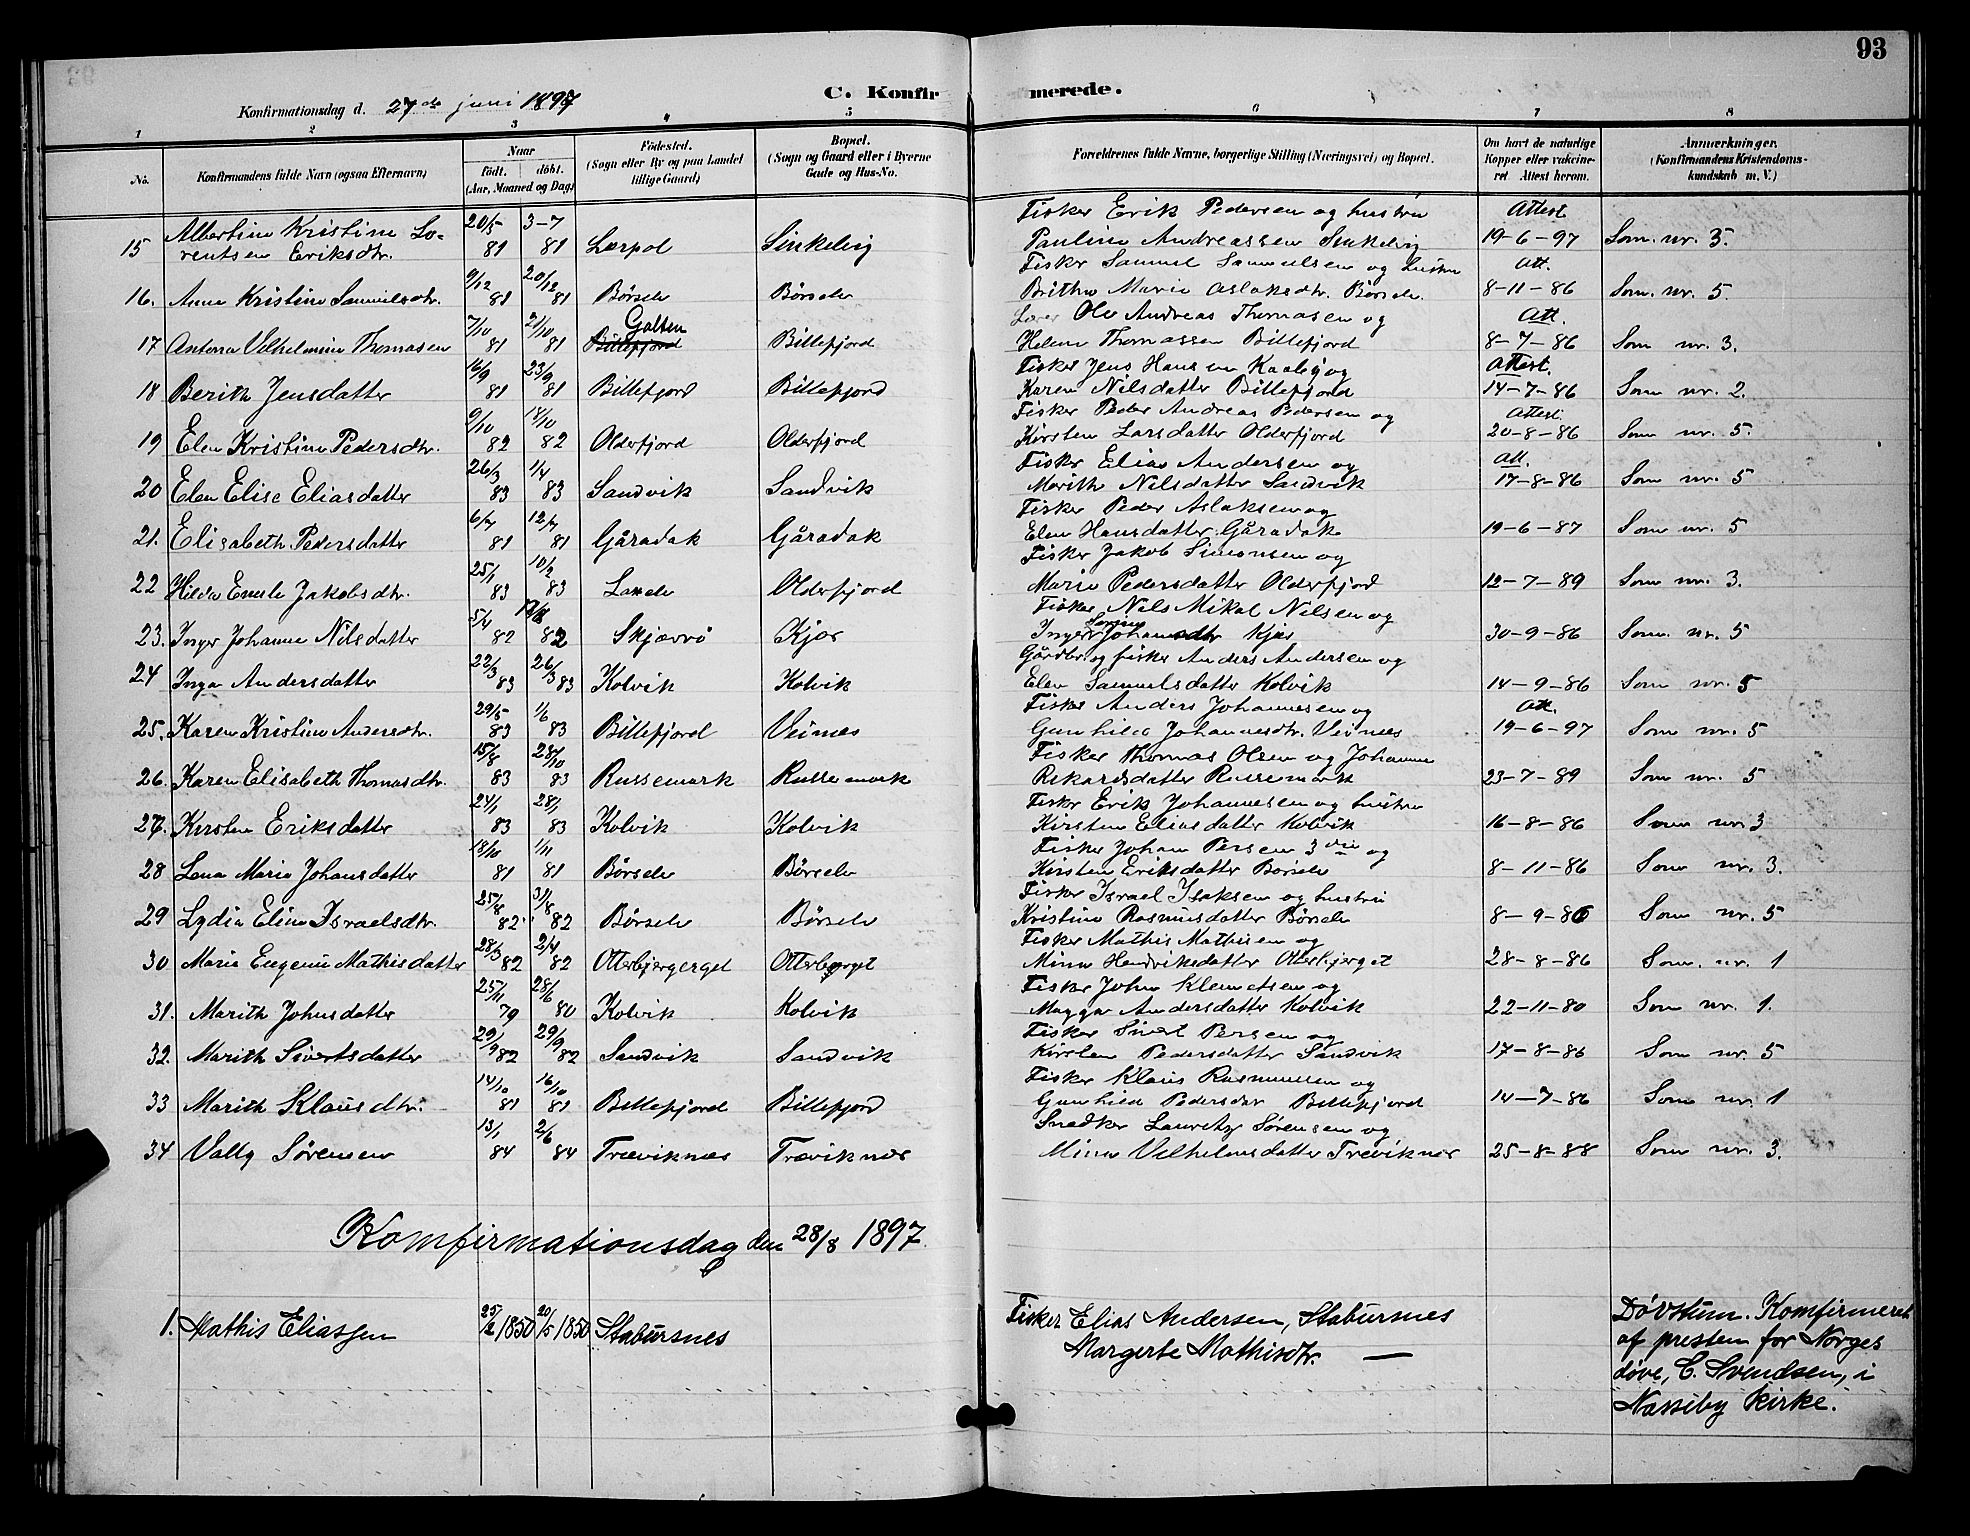 93
Konfirmationsdag d. 27de juni 1897
C. Konfirmerede.
1 2 3 4 5 6 7 8
No.
Konfirmandens fulde Navn (ogsaa Efternavn)
Naar
födt. döbt.
(Aar, Maaned og Dag)
Födested.
(Sogn eller By og paa Landet
tillige Gaard)
Bopæl.
(Sogn og Gaard eller i Byerne
Gade og Hus-No.
Forældrenes fulde Navne, borgerlige Stilling (Næringsvei) og Bopæl.
Om havt de naturlige
Kopper eller vakcine-
ret Attest herom.
Anmærkninger.
(Konfirmandens Kristendoms-
kundskab m. V.)
15 Albertine Kristine Lo-
rentsen Eriksdtr. 20/5 81 3-7 81 Lerpol Sinkelvig
Fisker Erik Pedersen og hustru
Pauline Andreassen Sinkelvig
Attest 19-6-97 Som. nr. 5.
16. Anne Kristine Samuelsdtr. 9/12 81 20/12 81 Börsele Börsele
Fisker Samuel Samuelsen og hustru
Brithe Marie Aslaksdtr. Börsele.
Att. 8-11-86 Som. nr. 5.
17 Antona Vilhelmine Thomasen 7/10 81 21/10 81 Galten Billefjord Billefjord
Lærer Ole Andreas Thomasen og
Helene Thomassen Billefjord
Att 8-7-86 Som nr. 3.
18 Berith Jensdatter 16/9 81 23/9 81 Billefjord Billefjord
Fisker Jens Hansen Kaaby og
Karen Nilsdatter Billefjord
Attest. 14-7-86 Som nr. 2.
19 Elen Kristine Pedersdtr. 9/10 82 14/10 82 Olderfjord Olderfjord
Fisker Peder Andreas Pedersen og
Kirsten Larsdatter Olderfjord
Attest. 20-8-86 Som nr. 5.
20 Elen Elise Eliasdatter 26/3 83 1/4 83 Sandvik Sandvik
Fisker Elias Andersen og
Marith Nilsdatter Sandvik
Att. 17-8-86 Som nr. 5
21. Elisabeth Pedersdatter 6/7 81 12/7 81 Gåradak Gåradak
Fisker Peder Aslaksen og
Elen Hansdatter Gåradak
19-6-87 Som nr. 5
22 Hilda Emelie Jakobsdtr. 25/1 83 10/2 83 Olderfjord
Fisker Jakob Simonsen og
Marie Pedersdatter Olderfjord
12-7-89 Som nr. 3.
23. Inger Johanne Nilsdatter 5/4 82 82 Skjærvö Kjæs
Fisker Nils Mikal Nilsen og
Inger Sorine Johansdtr Kjæs
30-9-86 Som. nr. 5
24 Inga Andersdatter 22/3 83 26/3 83 Kolvik Kolvik
Gårdbr og fisker Anders Andersen og
Elen Samuelsdatter Kolvik
14-9-86 Som nr. 5
25. Karen Kristine Andersdtr. 29/5 83 1/6 83 Billefjord Veines
Fisker Anders Johannesen og
Gunhild Johannesdtr. Veines
Att. 19-6-97 Som nr. 5
26. Karen Elisabeth Thomasdtr. 15/8 83 28/10 83 Russemark Russemark
Fisker Thomas Olsen og Johanne
Rikardsdatter Russemark
23-7-89 Som nr. 5
27. Kirsten Eriksdatter 24/1 83 28/1 83 Kolvik Kolvik
Fisker Erik Johannesen og hustru
Kirsten Eliasdatter Kolvik
16-8-86 Som nr. 3
28 Lena Maria Johansdatter 18/10 81 1/11 81 Börsele Börsele
Fisker Johan Persen 3die og
Kirsten Eriksdatter Börsele
8-11-86 Som nr. 3.
29 Lydia Eline Israelsdtr. 25/8 82 31/8 82 Börsele Börsele
Fisker Israel Isaksen og hustru
Kristine Rasmusdatter Börsele
8-9-86 Som nr. 5
30 Maria Eugenie Mathisdatter 28/3 82 2/4 82 Otterbjergerget Otterbjerget
Fisker Mathis Mathisen og
Mina Hendriksdatter Otterbjerget
28-8-86 Som. nr. 1
31. Marith Johnsdatter 25/11 79 28/6 80 Kolvik Kolvik
Fisker John Klemetsen og
Magga Andersdatter Kolvik
22-11-80 Som nr. 1.
32. Marith Sivertsdatter 29/9 82 29/9 82 Sandvik Sandvik
Fisker Sivert Persen og
Kirsten Pedersdatter Sandvik
17-8-86 Som nr. 5
33 Marith Klausdtr. 14/10 81 16/10 81 Billefjord Billefjord
Fisker Klaus Rasmussen og
Gunhild Pedersdtr Billefjord
14-7-86 Som nr. 1
34 Vally Sörensen 13/1 84 2/6 84 Træviknes Træviknæs
Snedker Lauritz Sörensen og
Mina Vilhelmsdatter Træviknes
25-8-88 Som nr. 3.
Komfirmationsdag den 28/8 1897
1. Mathis Eliassen 1850 20/5 1850 Stabursnes
Fisker Elias Andersen, Stabursnes
Margerte Mathisdtr. —
Døvstum. Komfirmeret
af presten for Norges
døve, C. Svendsen, i
Nasseby kirke.